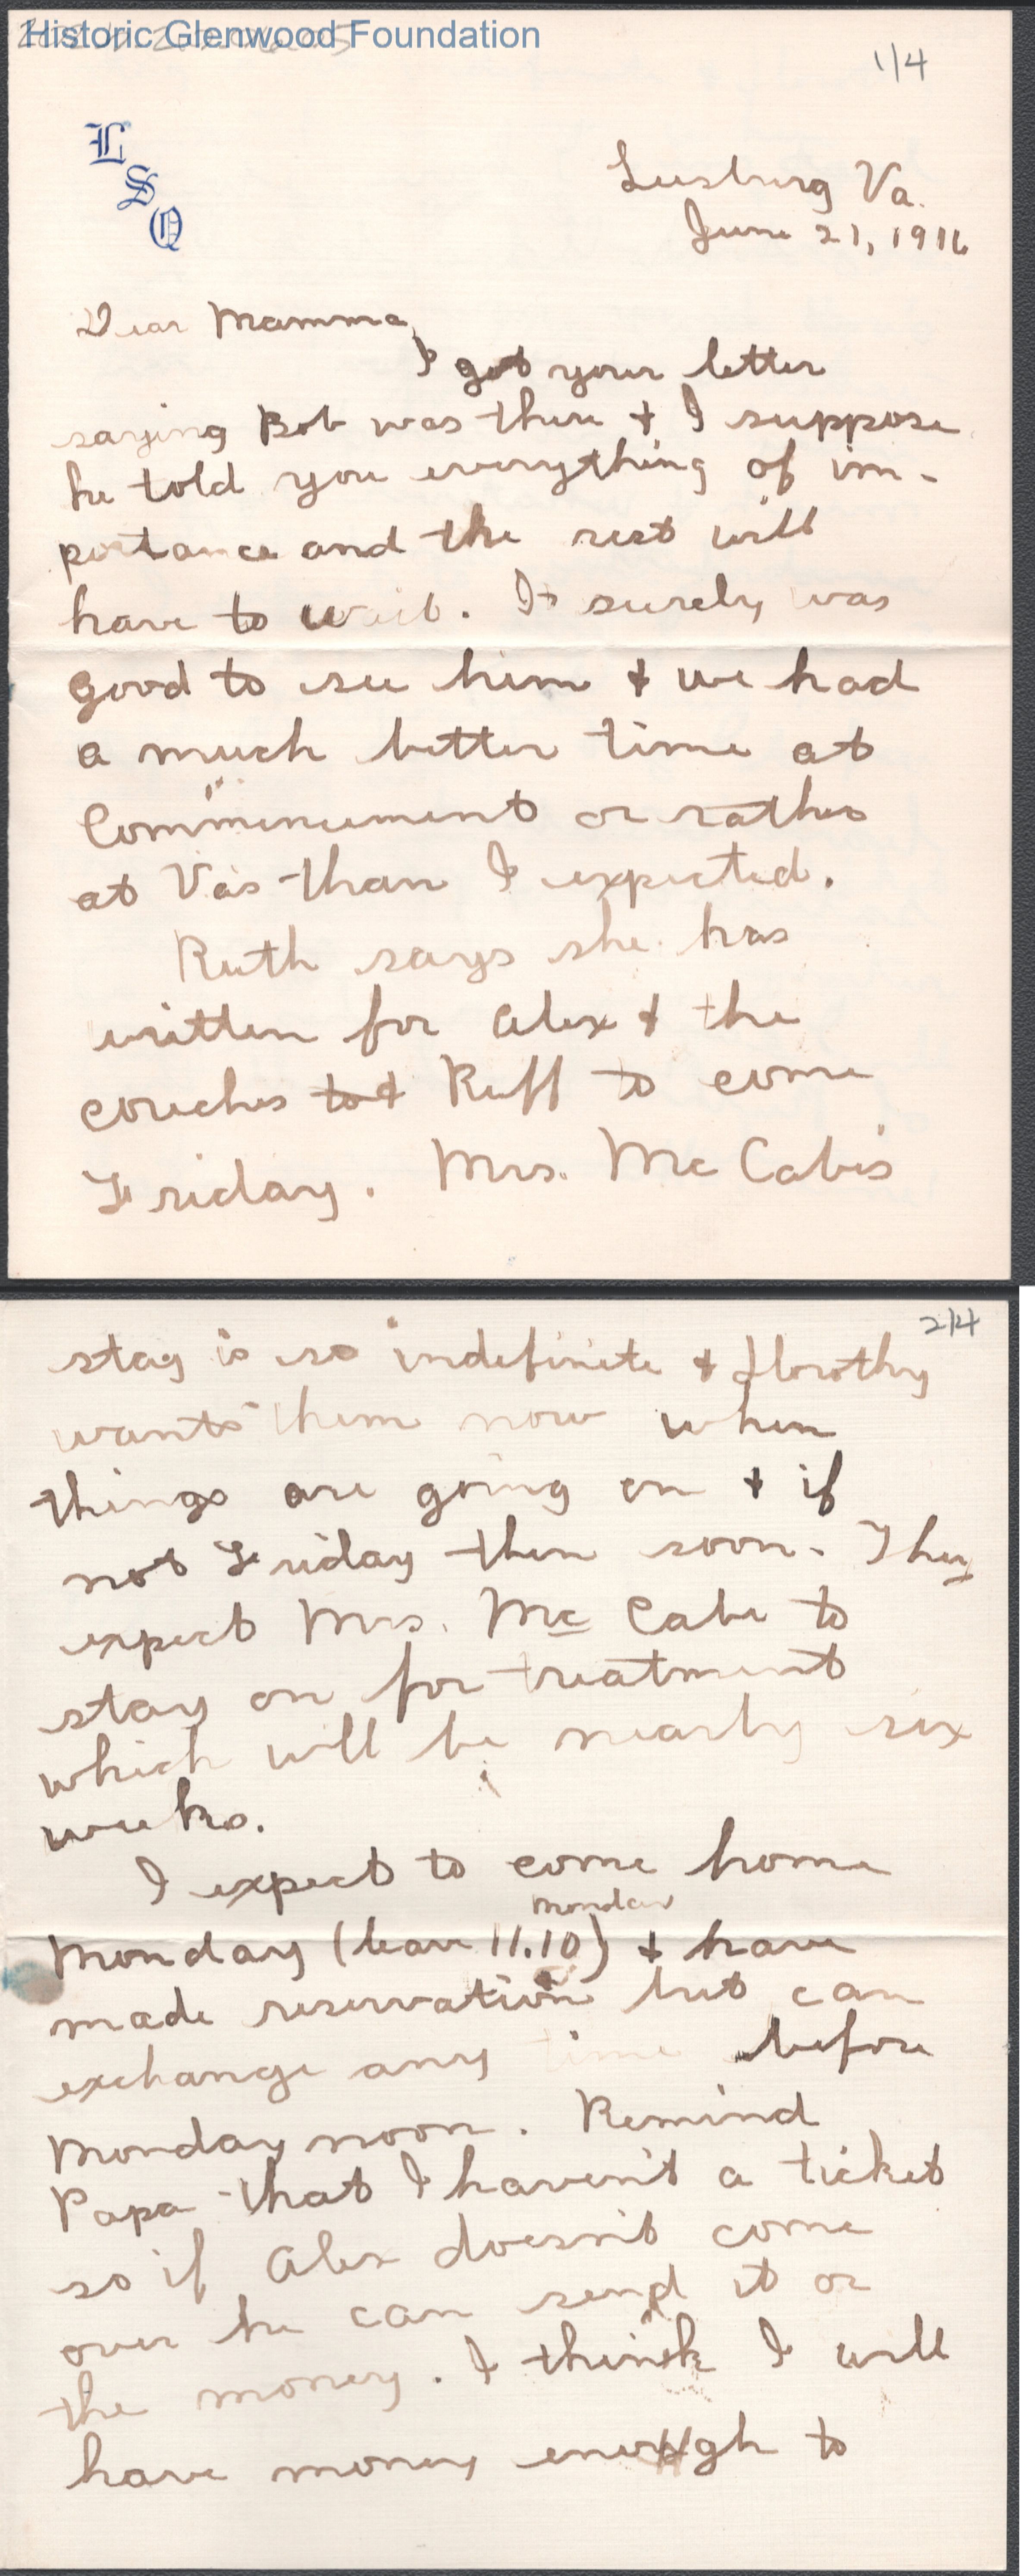 Historic Glenwood Foundation
1/4
L
S
Q
Leesburg Va.
June 21, 1916
Dear Mamma,
I got your letter
saying Bob was there & I suppose
he told you everything of im-
portance and the rest will
have to wait. It surely was
good to see him & we had
a much better time at
Commencement or rather
at Va's than I expected.
Ruth says she has
written for Alex & the
couches to & Ruff to come
Friday. Mrs. Mc Cabe's
2/4
stay is so indefinite & Dorothy
wants them now when
things are going on & if
not Friday then soon. They
expect Mrs. Mc Cabe to
stay on for treatment
which will be nearly six
weeks.
I expect to come home
Monday
Monday (leave 11.10) & have
made reservation but can
exchange any time before
Monday noon. Remind
Papa that I haven't a ticket
so if Alex doesn't come
over he can send it or
the money. I think I will
have money enough to